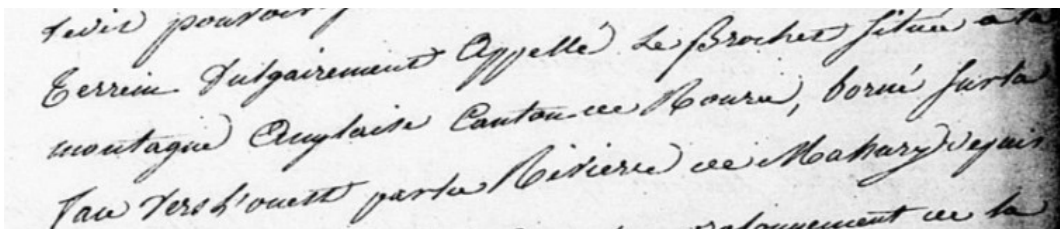 pouvoir
terrein Vulgairement Appellé Le Brochet situé à la
montagne Anglaise Canton de Roura, borné sur la
face Vers l'ouest par la Riviere de Mahury depuis
de la